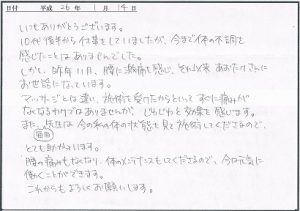 日付 平成 26年 1月 14日
いつもありがとうございます。
10代後半から仕事をしていましたが、今まで体の不調を
感じたことはありませんでした。
しかし、昨年11月、腰に激痛を感じ、それ以来 あおたけさんに
お世話になっています。
マッサージとは違い、施術を受けたからといって すぐに痛みが
なくなるわけではありませんが、じわじわと効果を感じます。
また、先生は 今の私の体の状態を見て施術してくださるので、
とても助かっています。
腰の痛みもなくなり、体のメンテナンスもしてくださるので、今は元気に
働くことができます。
これからもよろしくお願いします。